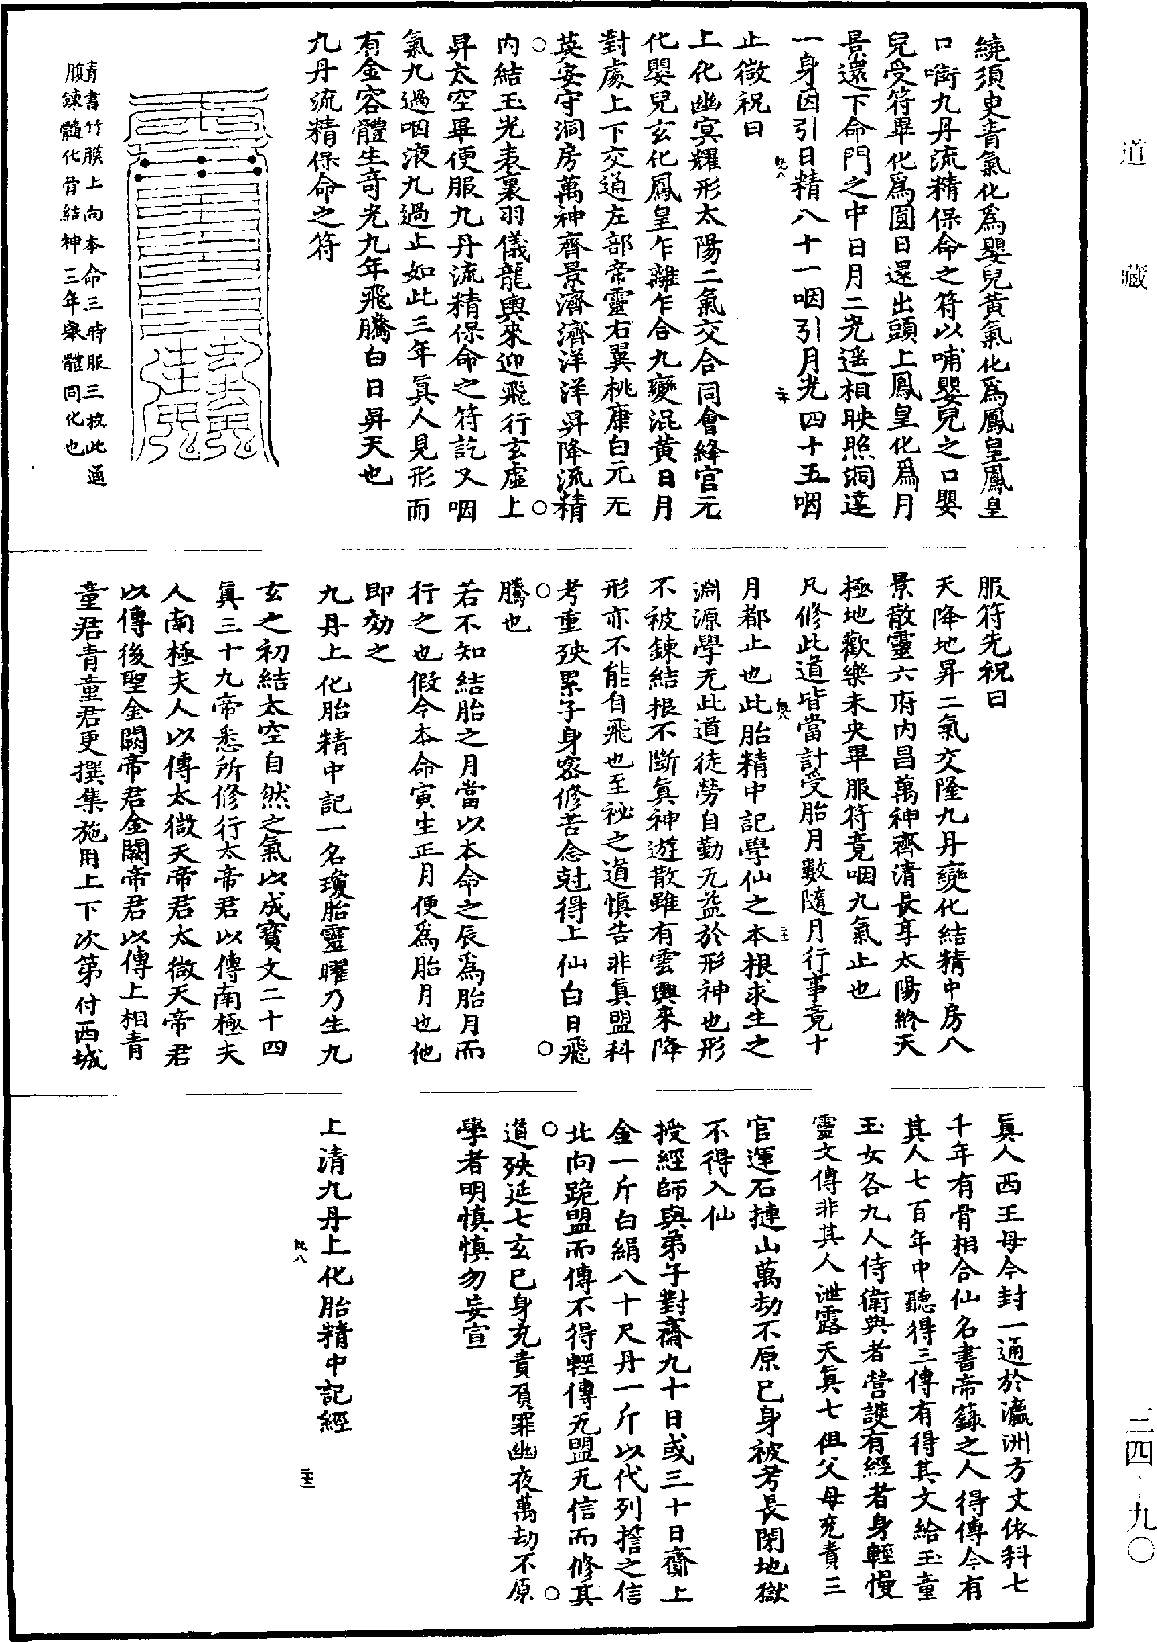 道藏
三四·九〇
繞須臾青氣化爲嬰兒黃氣化爲鳳皇鳳皇
口銜九丹流精保命之符以哺嬰兒之口嬰
兒受符畢化爲圓日還出頭上鳳皇化爲月
景還下命門之中日月二光遥相映照洞達
一身因引日精八十一咽引月光四十五咽
止微祝曰
上化幽㝠耀形太陽二氣交合同會絳宫元
化嬰兒玄化鳳皇乍離乍合九變混黃日月
對處上下交通左部帝靈右翼桃康白元无
英安守洞房萬神齊景濟濟洋洋昇降流精
内結玉光表裏羽儀龍輿來迎飛行玄虚上
昇太空畢便服九丹流精保命之符訖又咽
氣九過咽液九過止如此三年真人見形而
有金容體生奇光九年飛騰白日昇天也
九丹流精保命之符
青書竹膜上向本命三時服三枚此通
腹鍊髓化骨結神三年舉體同化也
服符先祝曰
天降地昇二氣交隆九丹變化結精中房八
景散靈六府内昌萬神齊清長享太陽終天
極地歡樂未央畢服符竟咽九氣止也
凡修此道皆當計受胎月數隨月行事竟十
月都止也此胎精中記學仙之本根求生之
淵源學无此道徒勞自勤无益於形神也形
不被鍊結根不斷真神遊散雖有雲輿來降
形亦不能自飛也至祕之道慎告非真盟科
考重殃累子身密修苦念尅得上仙白日飛
騰也
若不知結胎之月當以本命之辰爲胎月而
行之也假令本命寅生正月便爲胎月也他
即効之
九丹上化胎精中記一名瓊胎靈曜乃生九
玄之初結太空自然之氣以成寳文二十四
真三十九帝悉所修行太帝君以傳南極夫
人南極夫人以傳太微天帝君太微天帝君
以傳後聖金闕帝君金闕帝君以傳上相青
童君青童君更撰集施用上下次第付西城
真人西王母今封一通於瀛洲方丈依科七
千年有骨相合仙名書帝籙之人得傳今有
其人七百年中聽得三傳有得其文給玉童
玉女各九人侍衛與者營護有經者身輕慢
靈文傳非其人泄露天真七但父母充責三
官運石揵山萬劫不原己身被考長閉地獄
不得入仙
授經師與弟子對齋九十日或三十日齋上
金一斤白絹八十尺丹一斤以代列誓之信
北向跪盟而傳不得輕傳无盟无信而修其
道殃延七玄己身充責負罪幽夜萬劫不原
學者明慎慎勿妄宣
上清九丹上化胎精中記經